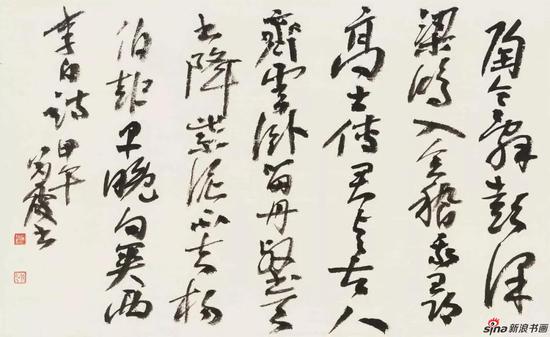 陶令辞彭泽
梁鸿入会稽我寻
高士传君与古人
齊雲卧留丹壑天
书降紫泥不知杨
伯起早晚向关西
李白诗甲午
书
sina新浪书画